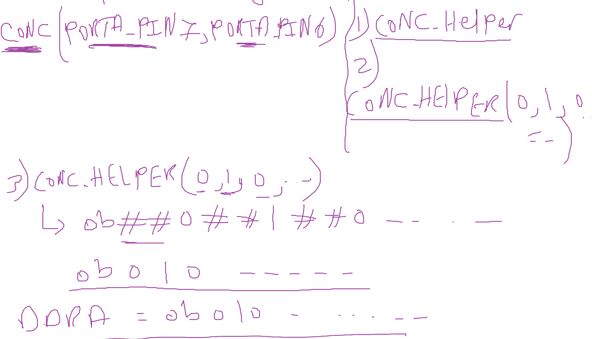 CONC(PORTA_PIN7,PORTA_PIN6)
1) CONC_Helper
2)
CONC_HELPER(0,1,0
--)
3) CONC_HELPER(0,1,0,--)
↳ 0b##0##1##0 -- . . —
0b010 -----
DDRA = 0b010 - ... --